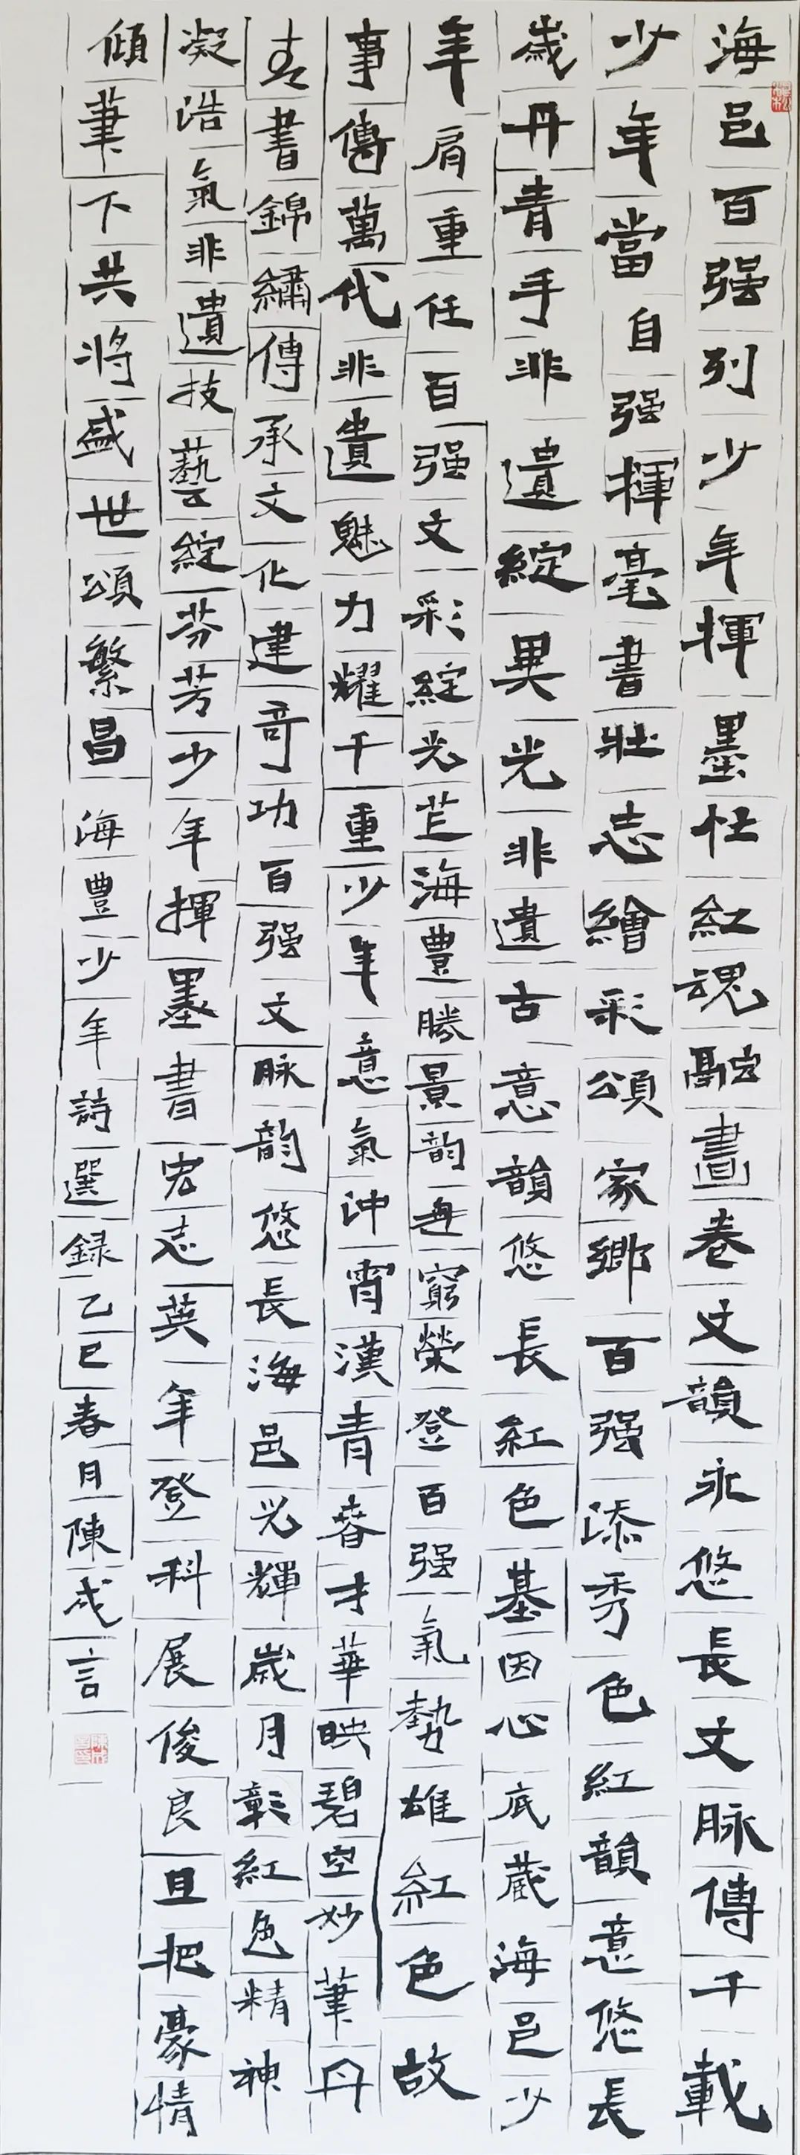 海邑百强列少年揮墨忙紅魂融畫卷文韻永悠長文脉傳千載
少年當自强揮毫書壯志繪彩頌家鄉百强添秀色紅韻意悠長
歲丹青手非遺綻異光非遺古意韻悠長紅色基因心底蔵海邑少
年肩重任百强文彩綻光芒海豐勝景韵無窮榮登百强氣勢雄紅色故
事傳萬代非遺魅力耀千重少年意氣沖霄漢青春才華映碧空妙筆丹
青書錦繡傳承文化建奇功百强文脉韵悠長海邑光輝歲月彰紅色精神
凝浩氣非遺技藝綻芬芳少年揮墨書宏志英年登科展俊良且把豪情
傾筆下共將盛世頌繁昌 海豐少年詩選録乙巳春月陳成言